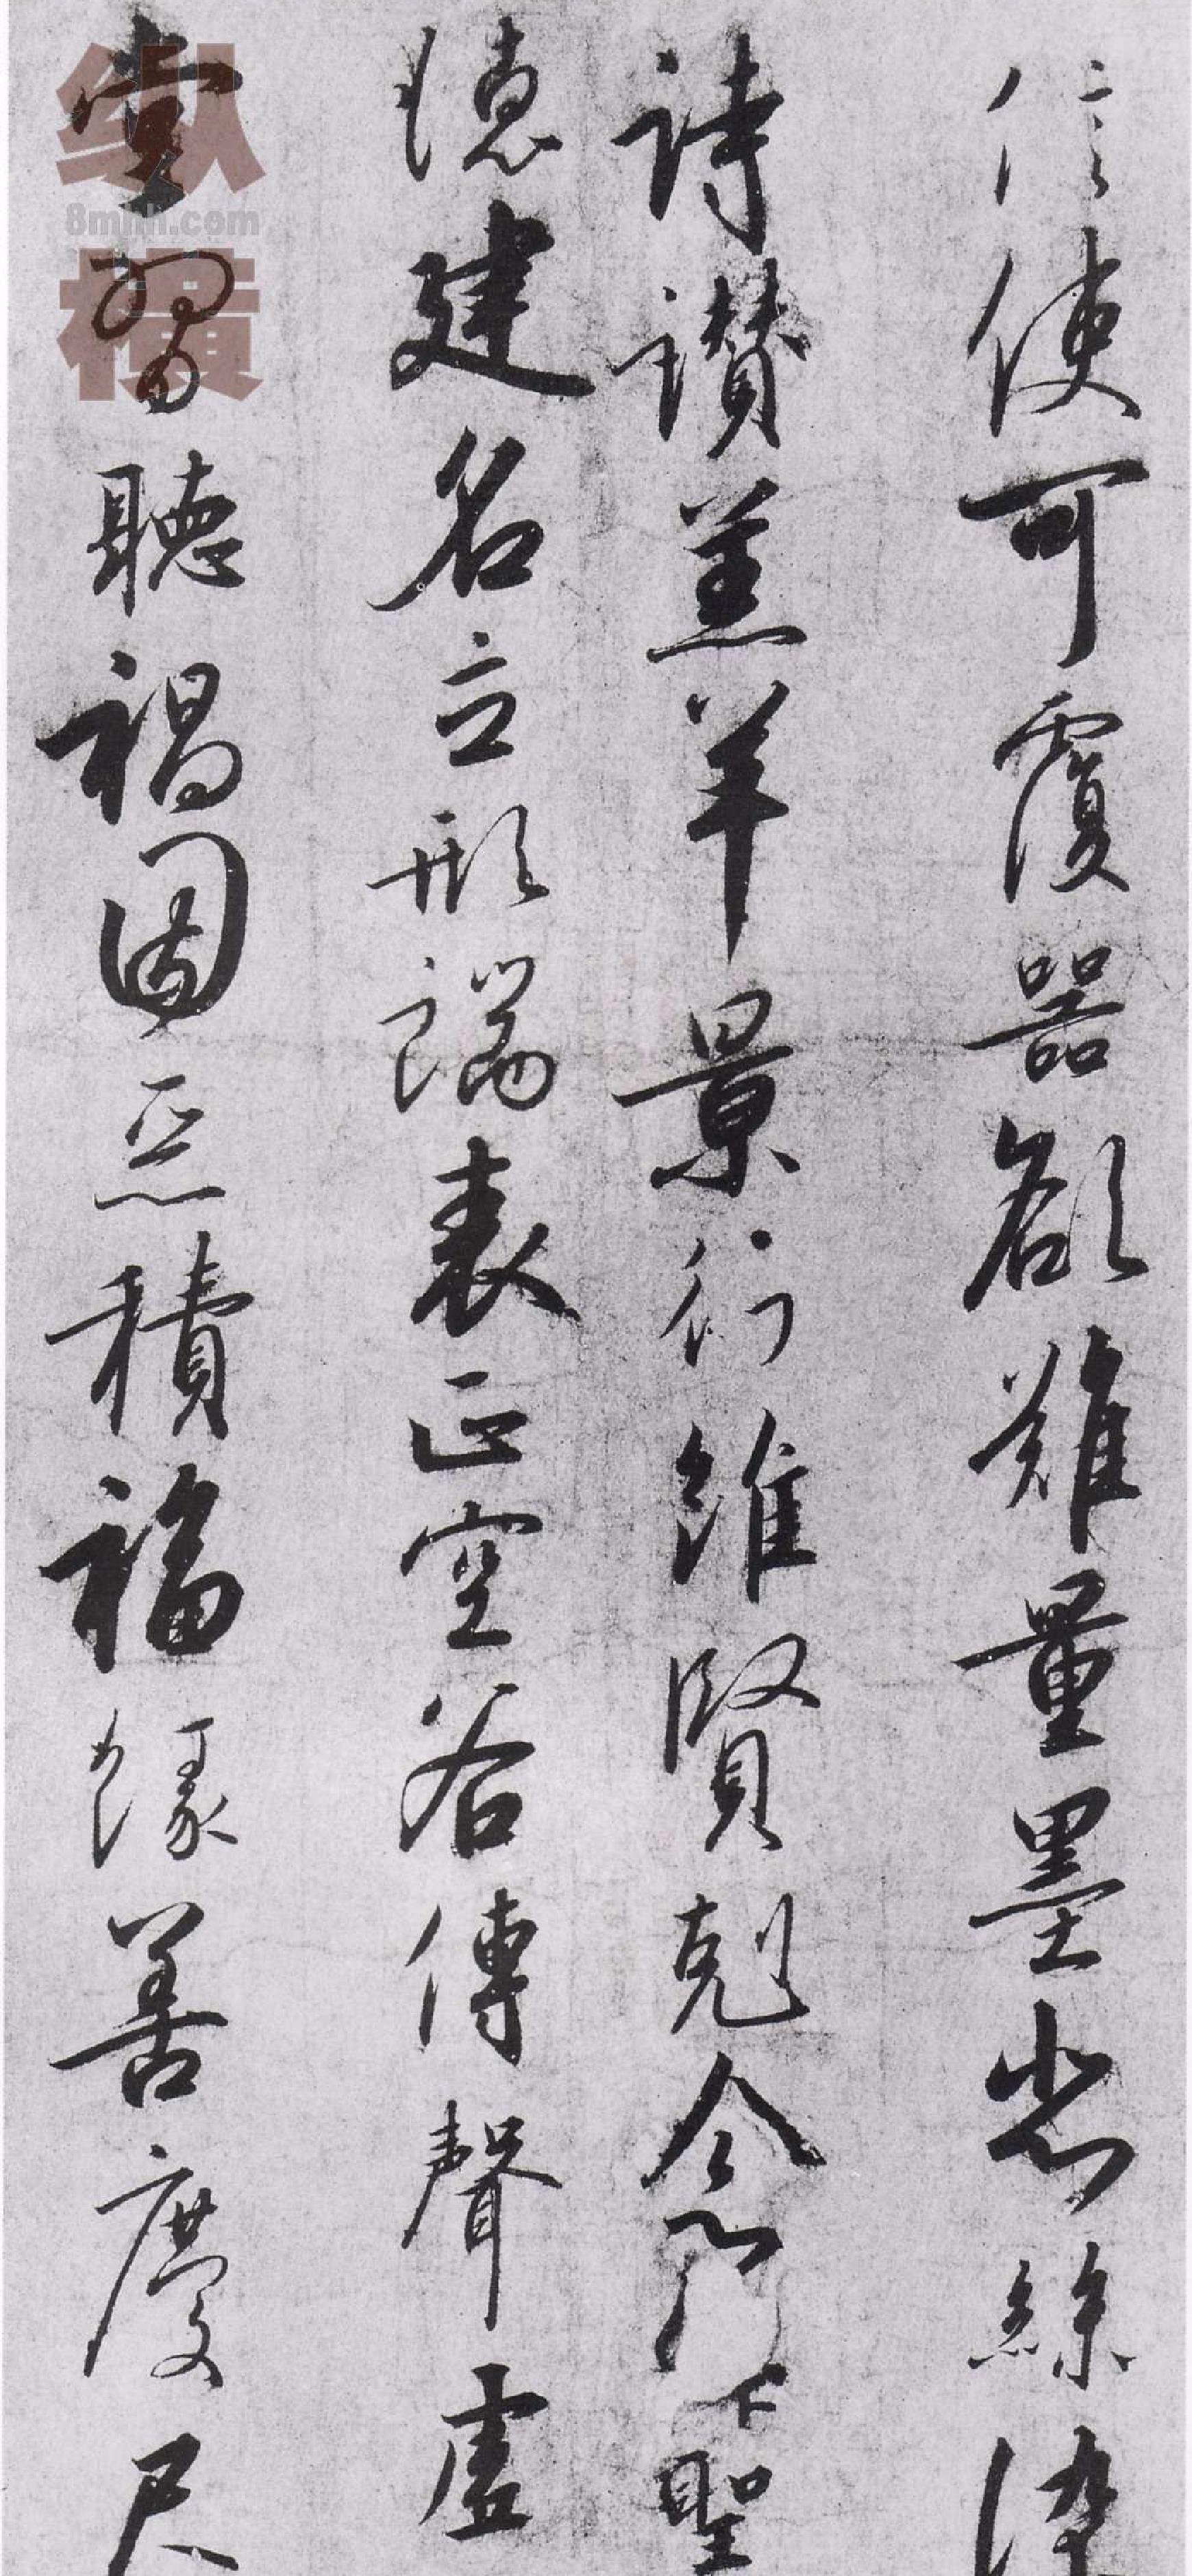 信使可覆器欲難量墨悲絲染
詩讚羔羊景行維賢剋念作聖
德建名立形端表正空谷傳聲虛
堂習聽禍因惡積福緣善慶尺
纵橫
8mhh.com